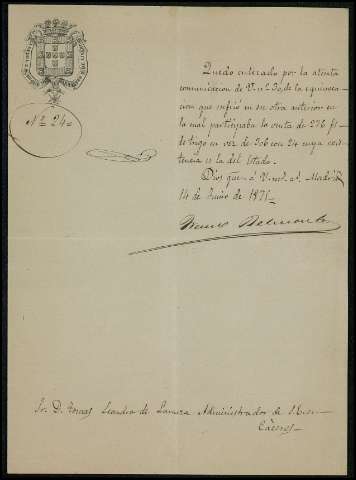 Nº 24
Quedo enterado por la atenta
comunicacion de V. nº 30, de la equivoca-
cion que sufrió en su otra anterior en
la cual participaba la venta de 276 fs
de trigo en vez de 306 con 24 cuya exis-
tencia es la del Estado.
Dios gue. á V. m. a. Madrid
14 de Junio de 1871
Belmonte
Sr. D. Tomas Leandro de Administrador de
Cáceres